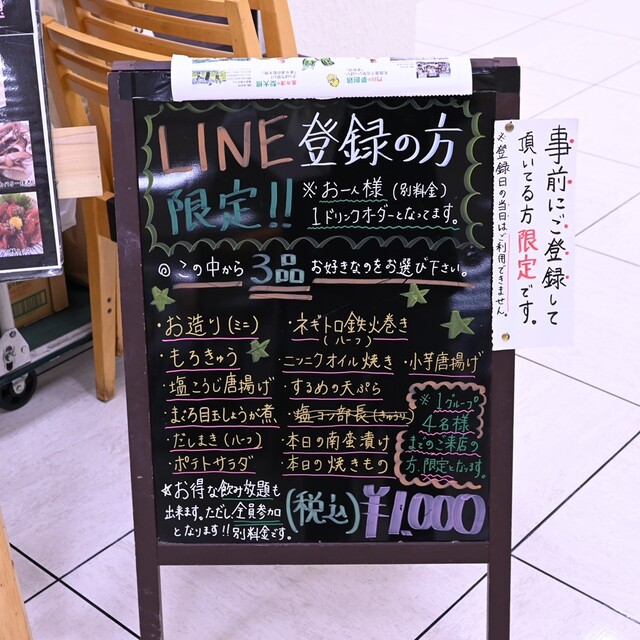 LINE 登録の方
限定!!
※お一人様(別料金)
1ドリンクオーダーとなってます。
◎この中から3品お好きなのをお選び下さい。
・お造り(ミニ)
・もろきゅう
・塩こうじ唐揚げ
・まぐろ目玉しょうが煮
・だしまき(ハーフ)
・ポテトサラダ
・ネギトロ鉄火巻き
(ハーフ)
・ニンニクオイル焼き
・小芋唐揚げ
・するめの天ぷら
・塩コン部長(きゅうり)
・本日の南蛮漬け
・本日の焼きもの
※1グループ
4名様
までのご来店の
方、限定となります。
※お得な飲み放題も
出来ます。ただし全員参加
となります!!別料金です。
(税込)¥1,000
事前にご登録して
頂いてる方限定です。
※登録日の当日はご利用できません。